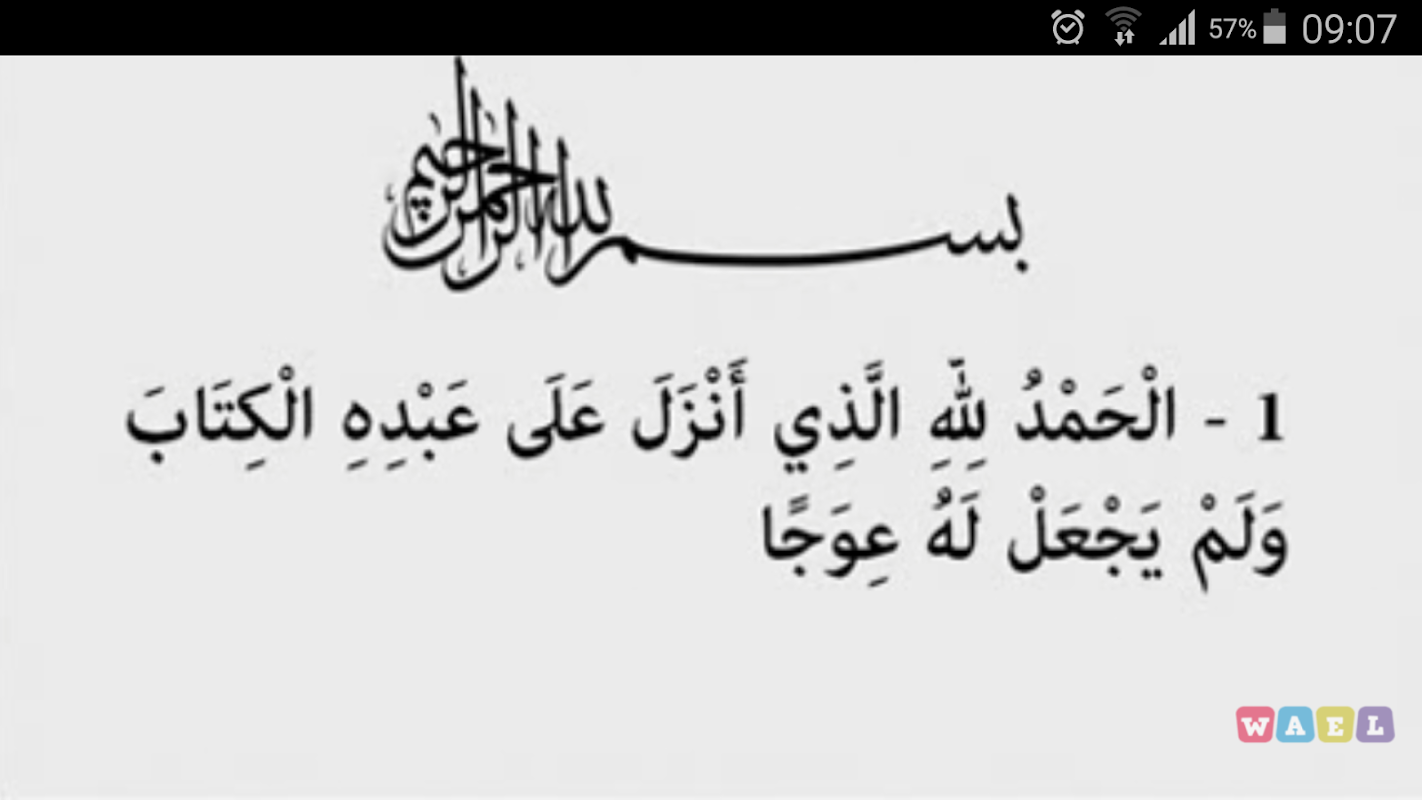 57% 09:07
بسم الله الرحمن الرحيم
1 - الْحَمْدُ لِلَّهِ الَّذِي أَنْزَلَ عَلَى عَبْدِهِ الْكِتَابَ
وَلَمْ يَجْعَلْ لَهُ عِوَجًا
WAEL